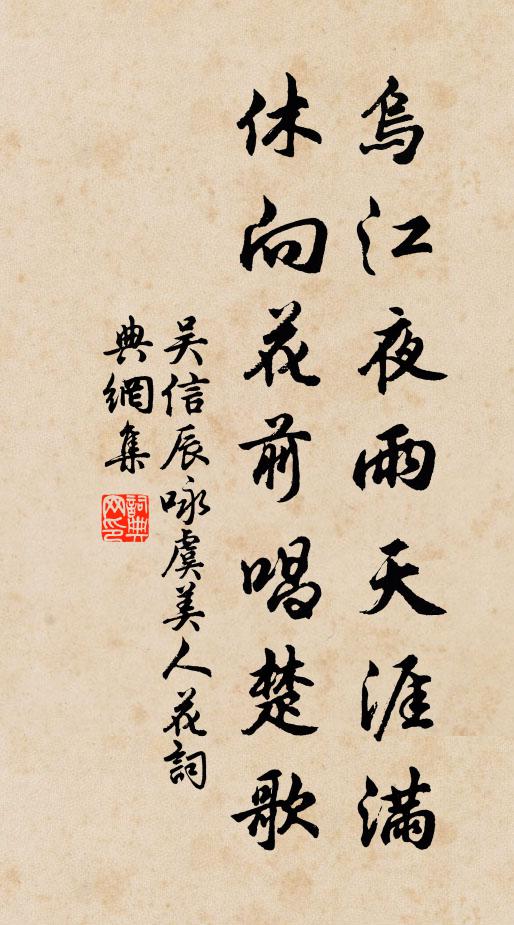 烏江夜雨天涯滿
休向花前唱楚歌
吳信辰咏虞美人花詞
典網集
詞典网印